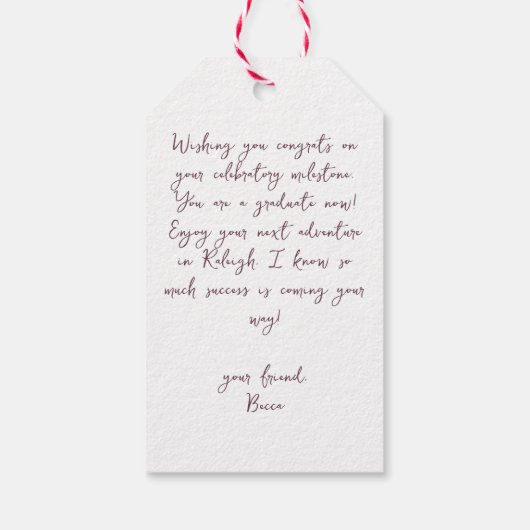 Wishing you congrats on
your celebratory milestone.
You are a graduate now!
Enjoy your next adventure
in Raleigh. I know so
much success is coming your
way!
your friend,
Becca